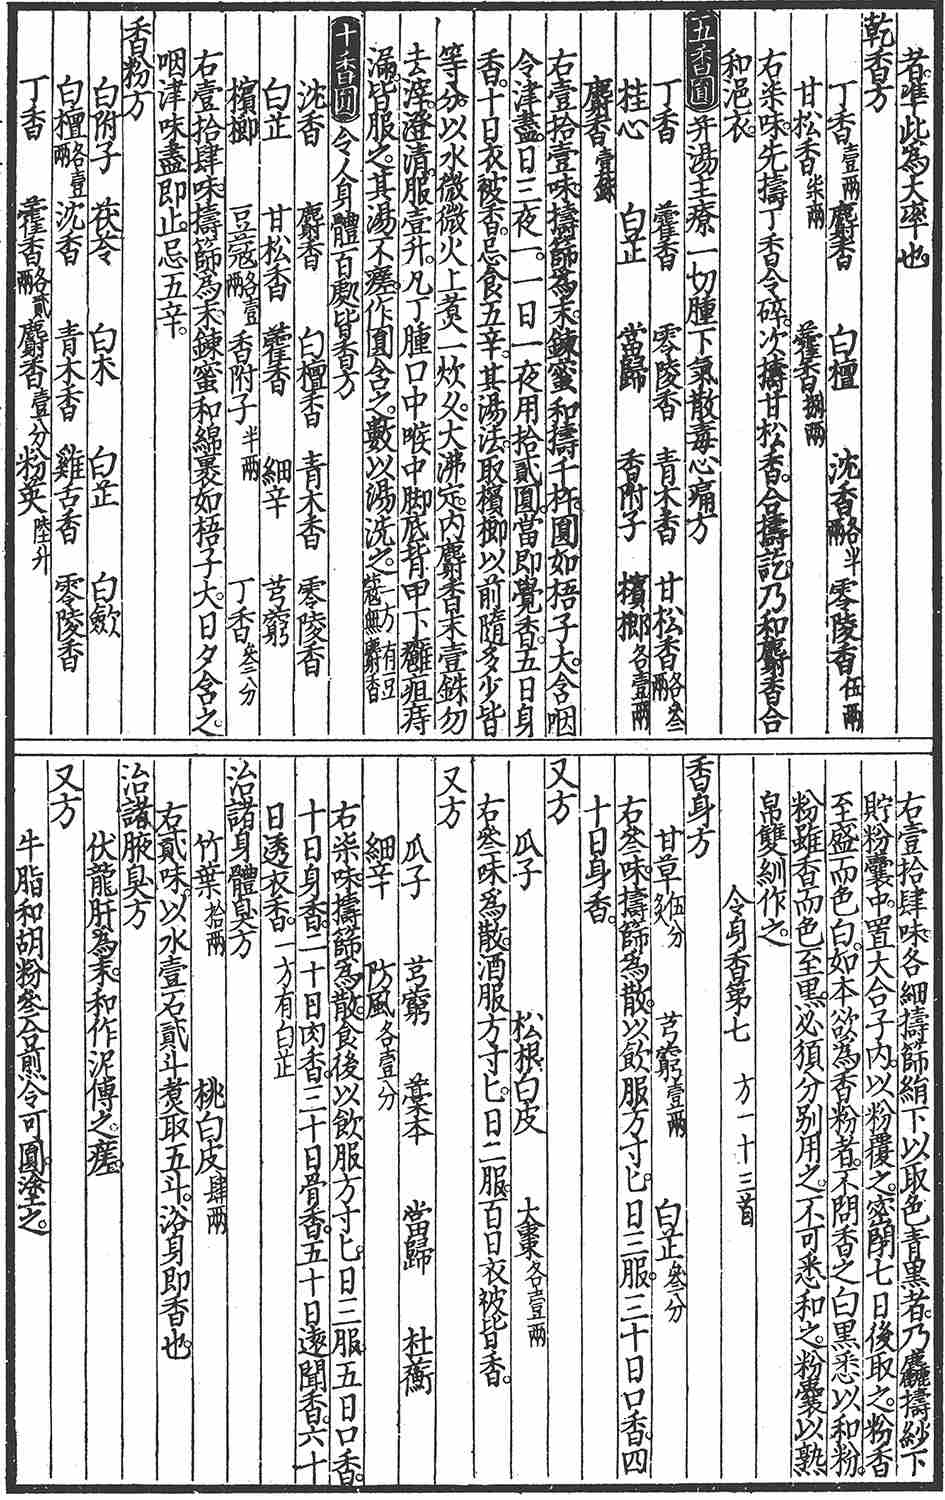 者準此為大率也
乾香方
丁香壹兩 麝香 白檀 沈香各半兩 零陵香伍兩
甘松香柒兩 藿香捌兩
右柒味先擣丁香令碎次擣甘松香合擣訖乃和麝香合
和浥衣
五香圓 并湯主療一切腫下氣散毒心痛方
丁香 藿香 零陵香 青木香 甘松香各叁兩
桂心 白芷 當歸 香附子 檳榔各壹兩
麝香壹銖
右壹拾壹味擣篩為末鍊蜜和擣千杵圓如梧子大含咽
令津盡日三夜一一日一夜用拾貳圓當即覺香五日身
香十日衣被香忌食五辛其湯法取檳榔以前隨多少皆
等分以水微微火上煑一炊久大沸定內麝香末壹銖勿
去滓澄清服壹升凡丁腫口中喉中脚底背甲下癰疽痔
漏皆服之其湯不瘥作圓含之數以湯洗之一方有豆蔻無麝香
十香圓 令人身體百處皆香方
沈香 麝香 白檀香 青木香 零陵香
白芷 甘松香 藿香 細辛 芎藭
檳榔 豆蔻各壹兩 香附子半兩 丁香叁分
右壹拾肆味擣篩為末鍊蜜和綿裹如梧子大日夕含之
咽津味盡即止忌五辛
香粉方
白附子 茯苓 白朮 白芷 白歛
白檀各壹兩 沈香 青木香 雞舌香 零陵香
丁香 藿香各貳兩 麝香壹分 粉英陸升
右壹拾肆味各細擣篩絹下以取色青黑者乃麤擣紗下
貯粉囊中置大合子內以粉覆之密閉七日後取之粉香
至盛而色白如本欲為香粉者不問香之白黑悉以和粉
粉雖香而色至黑必須分別用之不可悉和之粉囊以熟
帛雙紃作之
令身香第七 方一十三首
香身方
甘草伍分炙 芎藭壹兩 白芷叁分
右叁味擣篩為散以飲服方寸匕日三服三十日口香四
十日身香
又方
瓜子 松根白皮 大棗各壹兩
右叁味為散酒服方寸匕日二服百日衣被皆香
又方
瓜子 芎藭 藁本 當歸 杜蘅
細辛 防風各壹分
右柒味擣篩為散食後以飲服方寸匕日三服五日口香
十日身香二十日肉香三十日骨香五十日遠聞香六十
日透衣香一方有白芷
治諸身體臭方
竹葉拾兩 桃白皮肆兩
右貳味以水壹石貳斗煑取五斗浴身即香也
治諸腋臭方
伏龍肝為末和作泥傅之瘥
又方
牛脂和胡粉叁合煎令可圓塗之